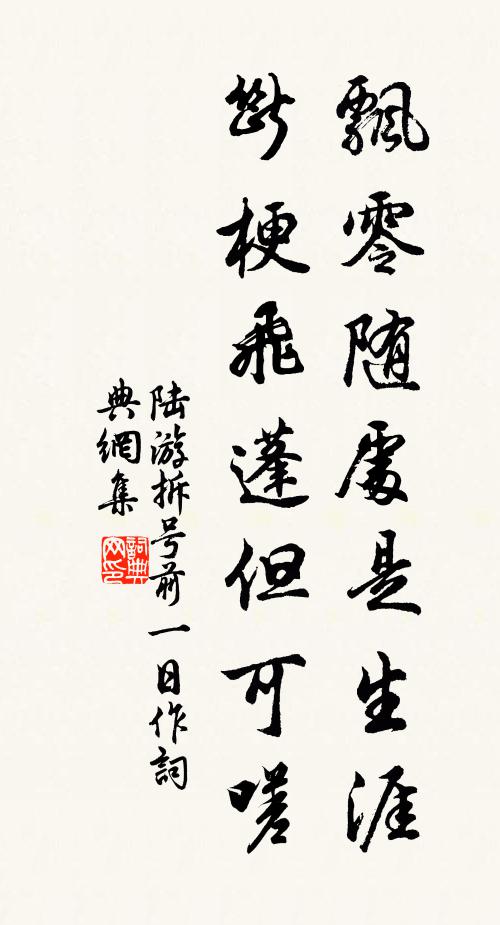 飄零随處是生涯
斷梗飛蓬但可嗟
陆游拆号前一日作詞
典網集
詞典网印